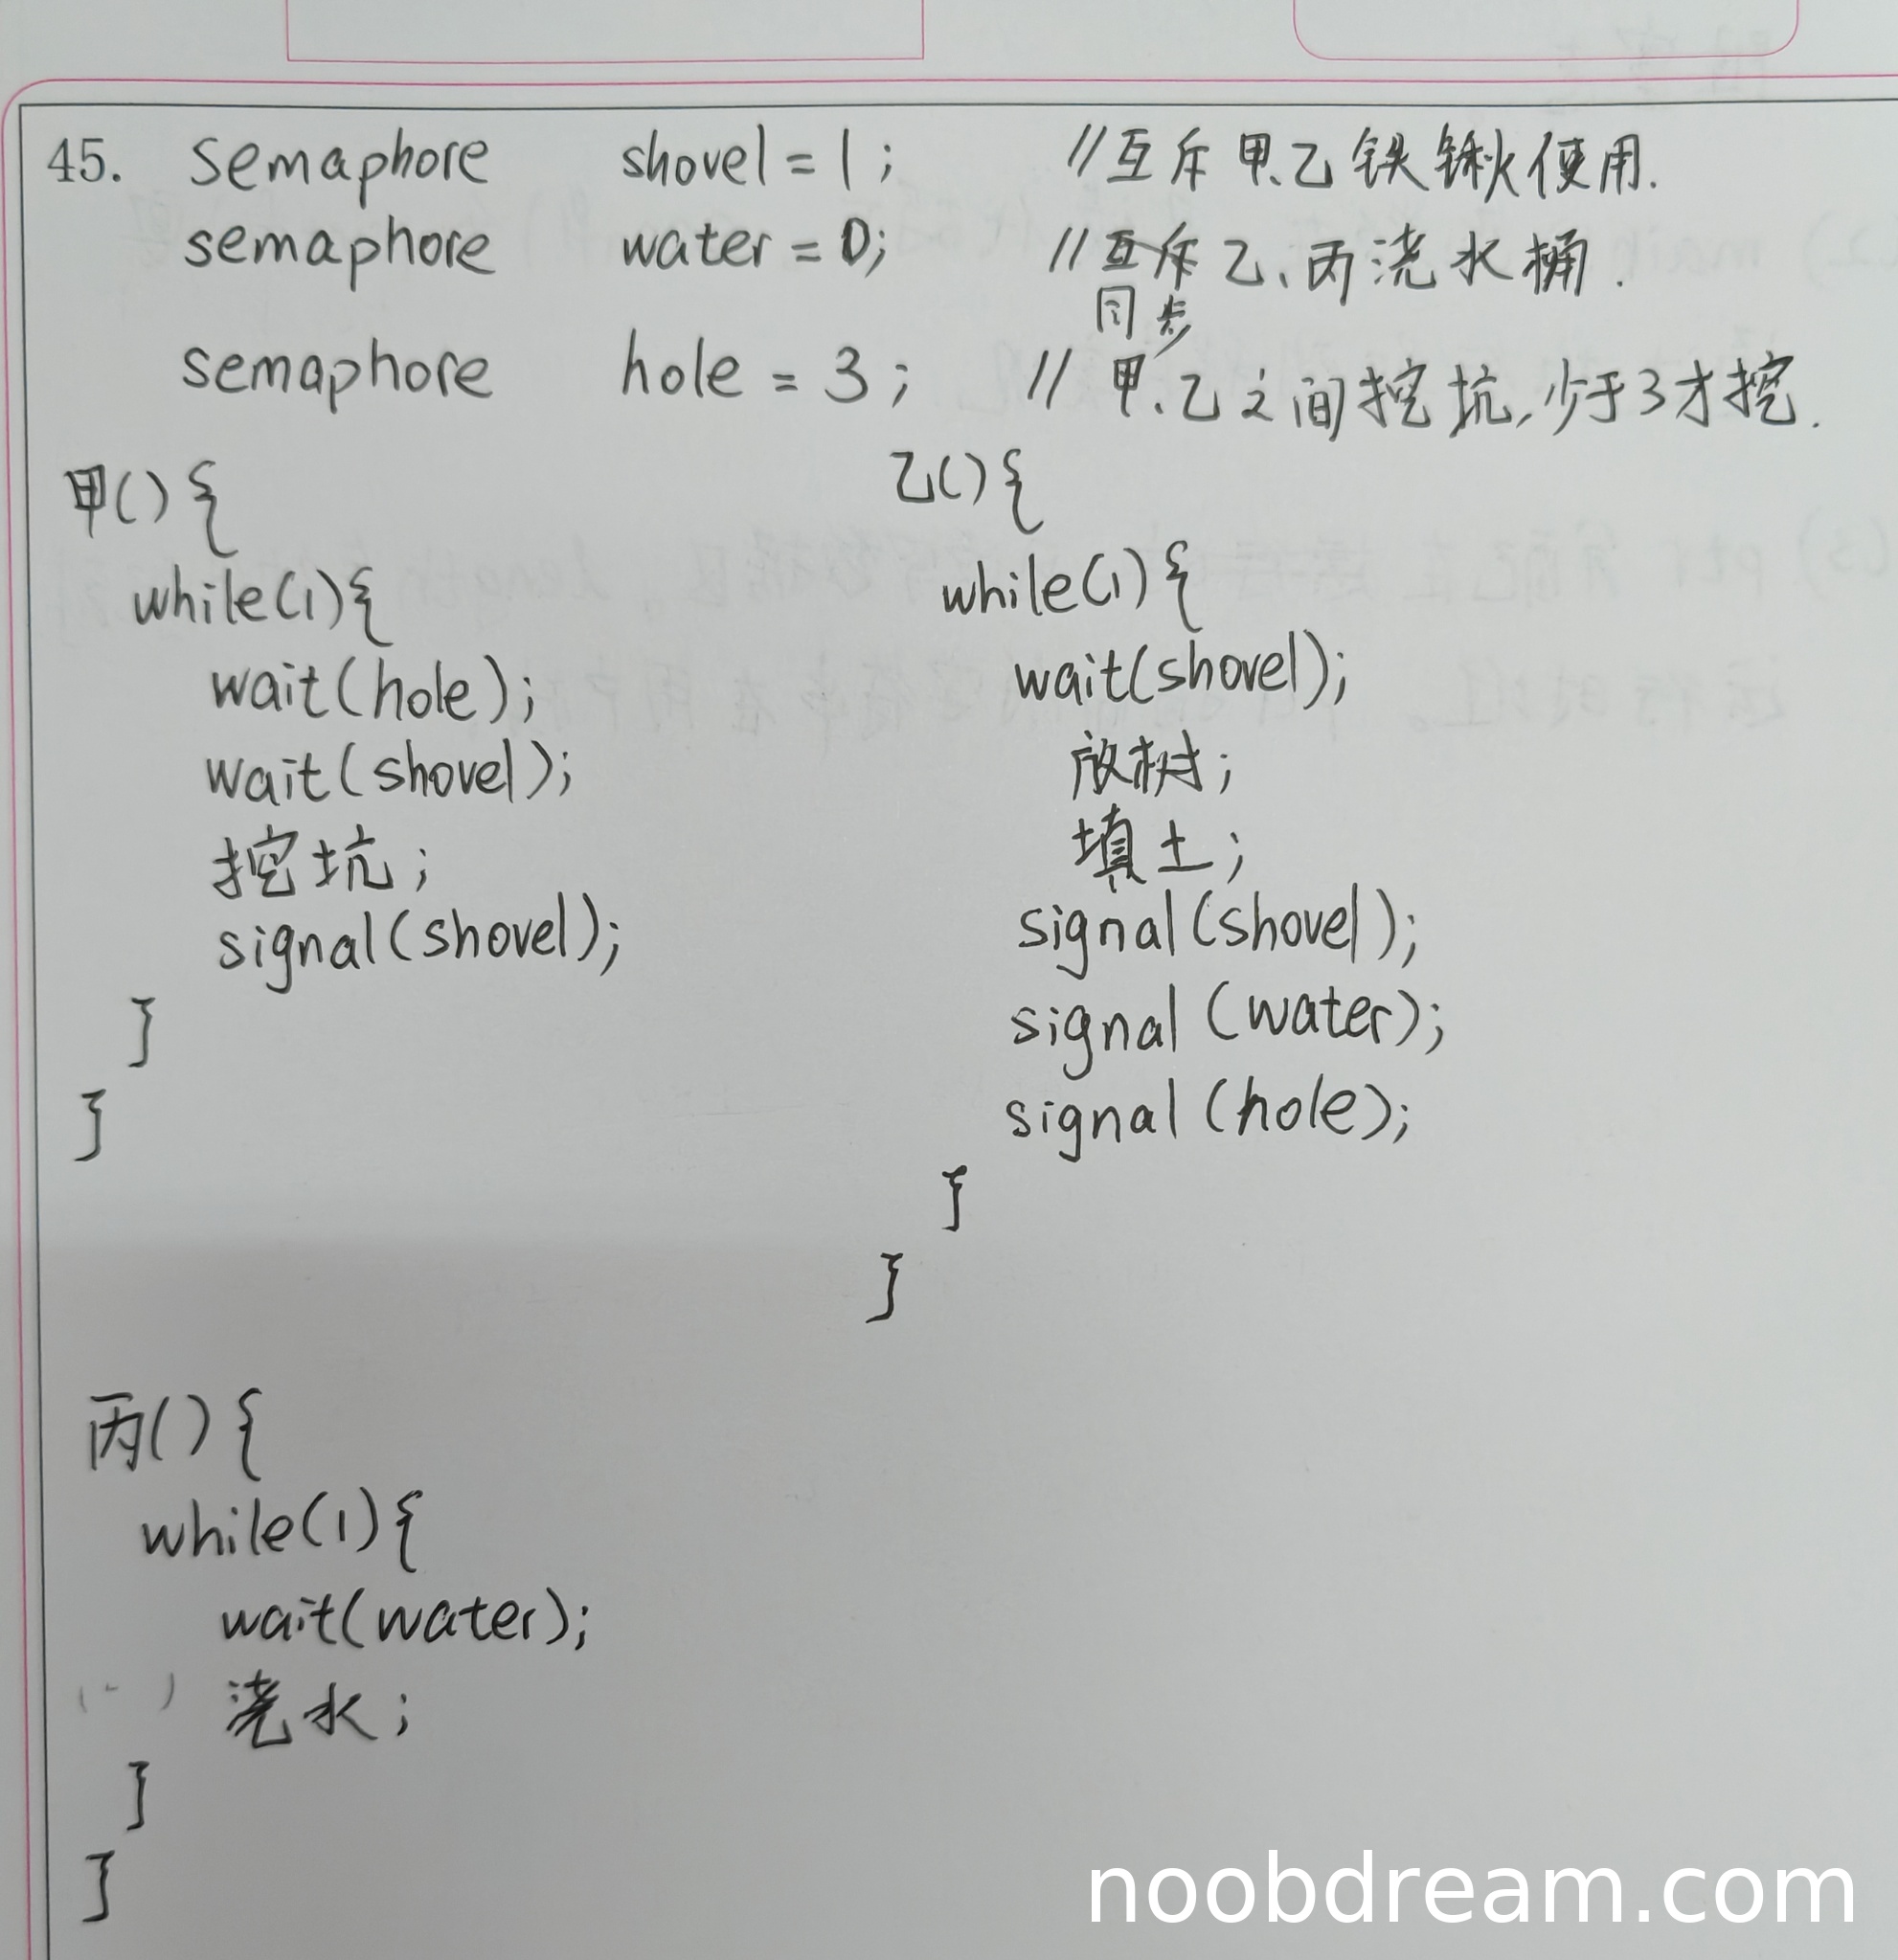 45. semaphore shovel = 1; //互斥甲、乙铁锹使用.
semaphore water = 0; //互斥乙、丙浇水桶.
同步
semaphore hole = 3; // 甲、乙之间挖坑,少于3才挖.
甲(){
while(1){
wait(hole);
wait(shovel);
挖坑;
signal(shovel);
}
}
乙(){
while(1){
wait(shovel);
放树;
填土;
signal(shovel);
signal(water);
signal(hole);
}
}
丙(){
while(1){
wait(water);
浇水;
}
}
noobdream.com